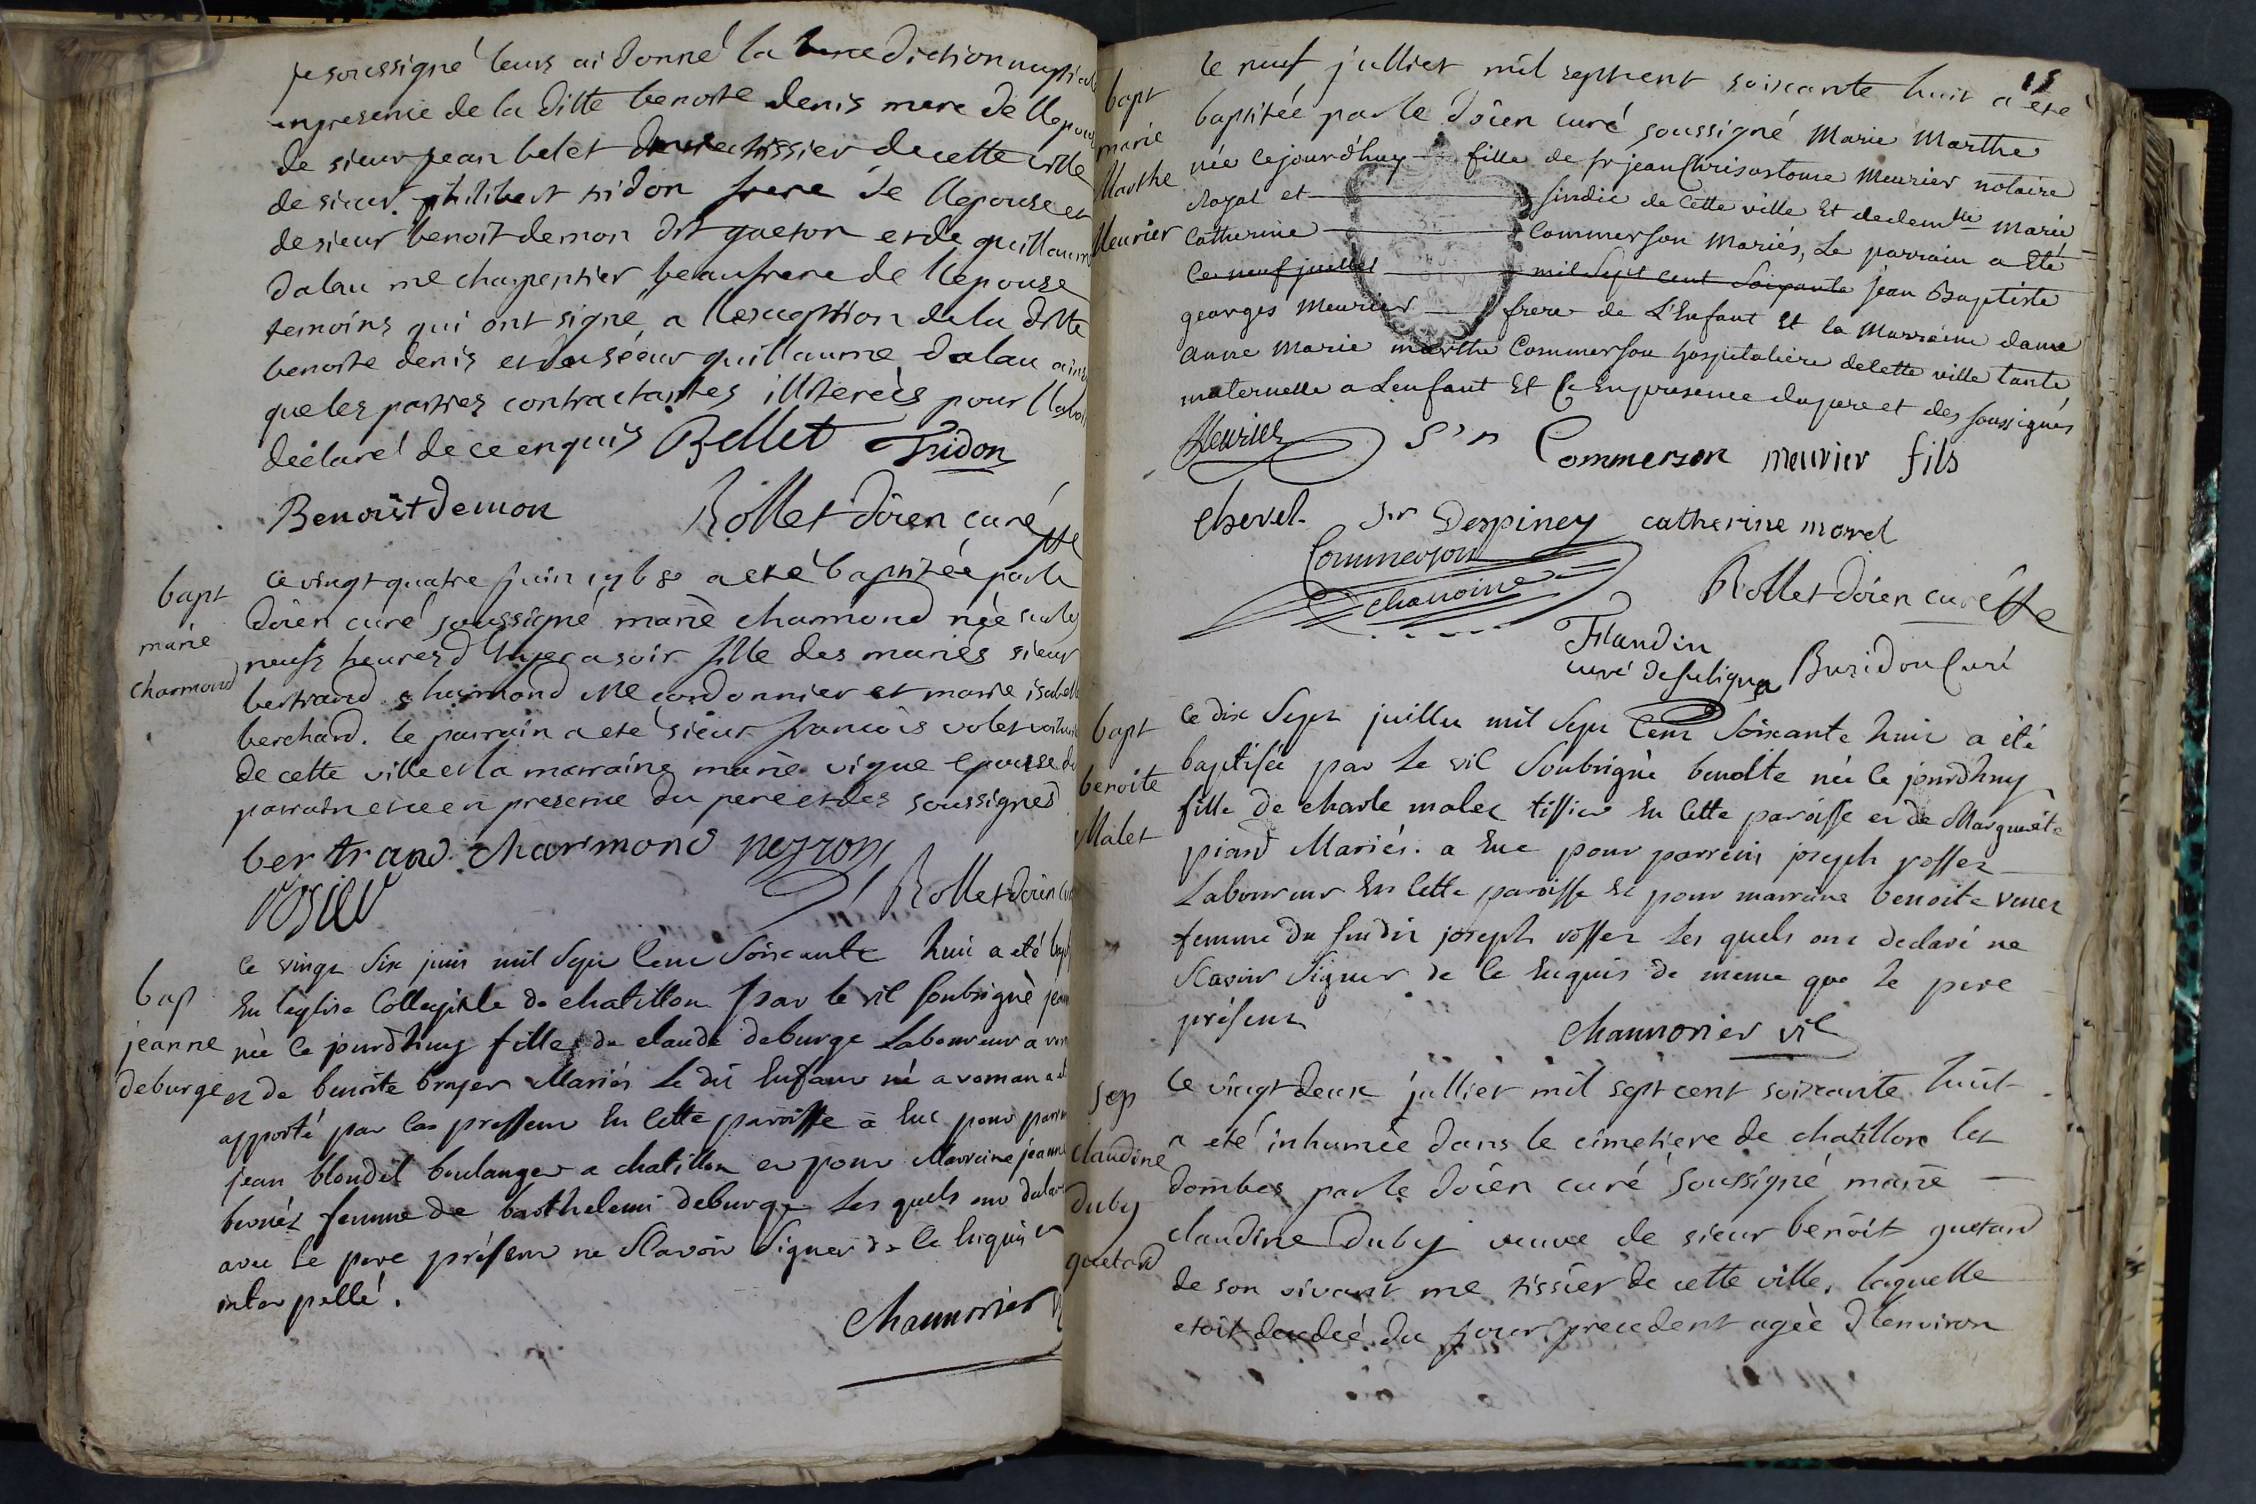 je soussigné leurs ai donné la benediction nuptiale
en presence de la ditte benoite denis mere de llepoux
de sieur jean belet tissier de cette ville
de sieur philibert tridon frere de llepouse et
de sieur benoit demon dit gueton et de guillaume
dalau me charpentier beaufrere de llepouse
temoins qui ont signé a llexception de la ditte
benoite denis et guillaume dalau ainsi
que les parties contractantes illiterées pour llavoir
déclaré de ce enquis Bellet Tridon
Benoist demon Rollet doïen curé
bapt
marie
charmond
ce vingt quatre juin 1768 a eté baptisée par le
doïen curé soussigné marie charmond née sur les
neufs heures d'hyer a soir fille des mariés sieur
bertrand charmond me cordonnier et marie isabelle
berchard. le parrain a eté sieur francois volet voiturier
de cette ville et la marraine marie vigue epouse du
parrain et ce en presence du pere et des soussignés
bertrand charmond neyron
Rollet doïen curé
bap
jeanne
deburge
ce vingt six juin mil sept cent soixante huit a eté
en leglise collegiale de chatillon par le vic soubsigné jeanne
née ce jourdhuy fille de claude deburge laboureur a
et de benoite broyer mariés le dit enfant né a
apporté par cas pressent en cette paroisse a eue pour parrain
jean blondel boulanger a chatillon et pour marraine jeanne
femme de barthelemi deburge les quels ont declaré
avec le pere présent ne scavoir signer de ce enquis et
interpellé.
chaunorier
15
bapt
marie
Marthe
Meurier
le neuf julliet mil septcent soixante huit a eté
baptisée par le doïen curé soussigné Marie Marthe
née cejourd'huy fille de sr jean Chrisostome Meurier notaire
Royal et sindic de cette ville et de demlle Marie
Catherine Commerson Mariés, Le parrain a eté
Ce neuf juillet mil sept cent soixante jean Baptiste
georges Meurier frere de L'Enfant Et la Marraine dame
anne Marie marthe Commerson hospitaliere de cette ville tante
maternelle a Lenfant Et Ce En presence du pere et des soussignés
Meurier Sr Commerson meurier fils
chevel Sr Despiney catherine morel
Commerson
chanoine
Rollet doïen curé
Flandin
curé de suligna Buridon Curé
bapt
benoite
Malet
ce dix sept juillet mil sept cent soixante huit a été
baptisée par le vic soubsigné benoite née ce jourdhuy
fille de charle malet tissier en cette paroisse et de Marguerite
piard Mariés. a eue pour parrein joseph rosset
Laboureur en cette paroisse et pour marraine benoite
femme du susdit joseph rosset les quels ont declaré ne
scavoir signer de ce enquis de meme que le pere
présent
chaunorier vic
sep
claudine
duby
guetard
ce vingt deux julliet mil sept cent soixante huit
a eté inhumée dans le cimetiere de chatillon les
dombes par le doïen curé soussigné marie
claudine duby veuve de sieur benoit guetard
de son vivant me tissier de cette ville, laquelle
etoit decedeé du jour precedent agée d'lenviron